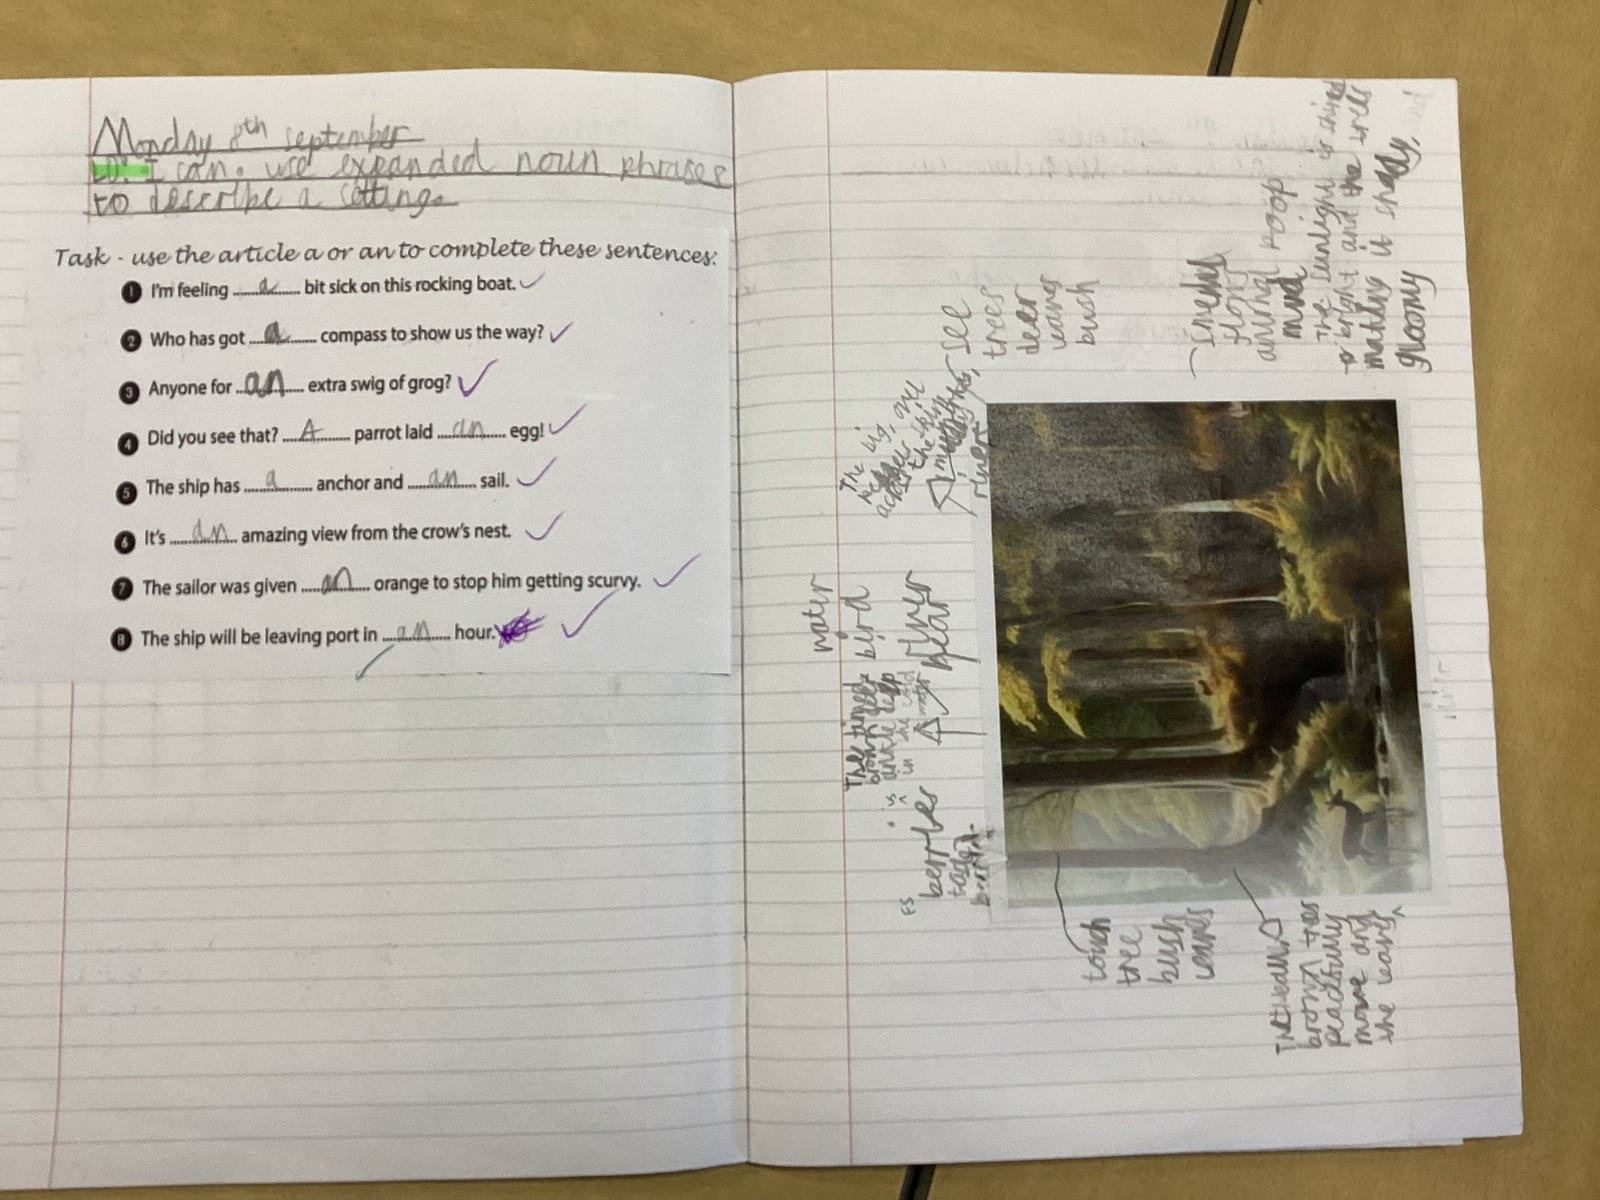 Monday 8th september
LO: I can. use expanded noun phrases
to describe a setting.
Task - use the article a or an to complete these sentences.
1 I'm feeling a bit sick on this rocking boat.
2 Who has got a compass to show us the way?
3 Anyone for an extra swig of grog?
4 Did you see that? A parrot laid an egg!
5 The ship has a anchor and an sail.
6 It's an amazing view from the crow's nest.
7 The sailor was given an orange to stop him getting scurvy.
8 The ship will be leaving port in an hour.
water
bird
river
hear
is ankle deep
in the cold
water
FS
berries
The big,
see
trees
deer
leaves
bush
animal poop
mud
The sunlight is
bright and the trees
making it shady,
gloomy
touch
tree
bush
leaves
brown
peacefully
move and
the leaves